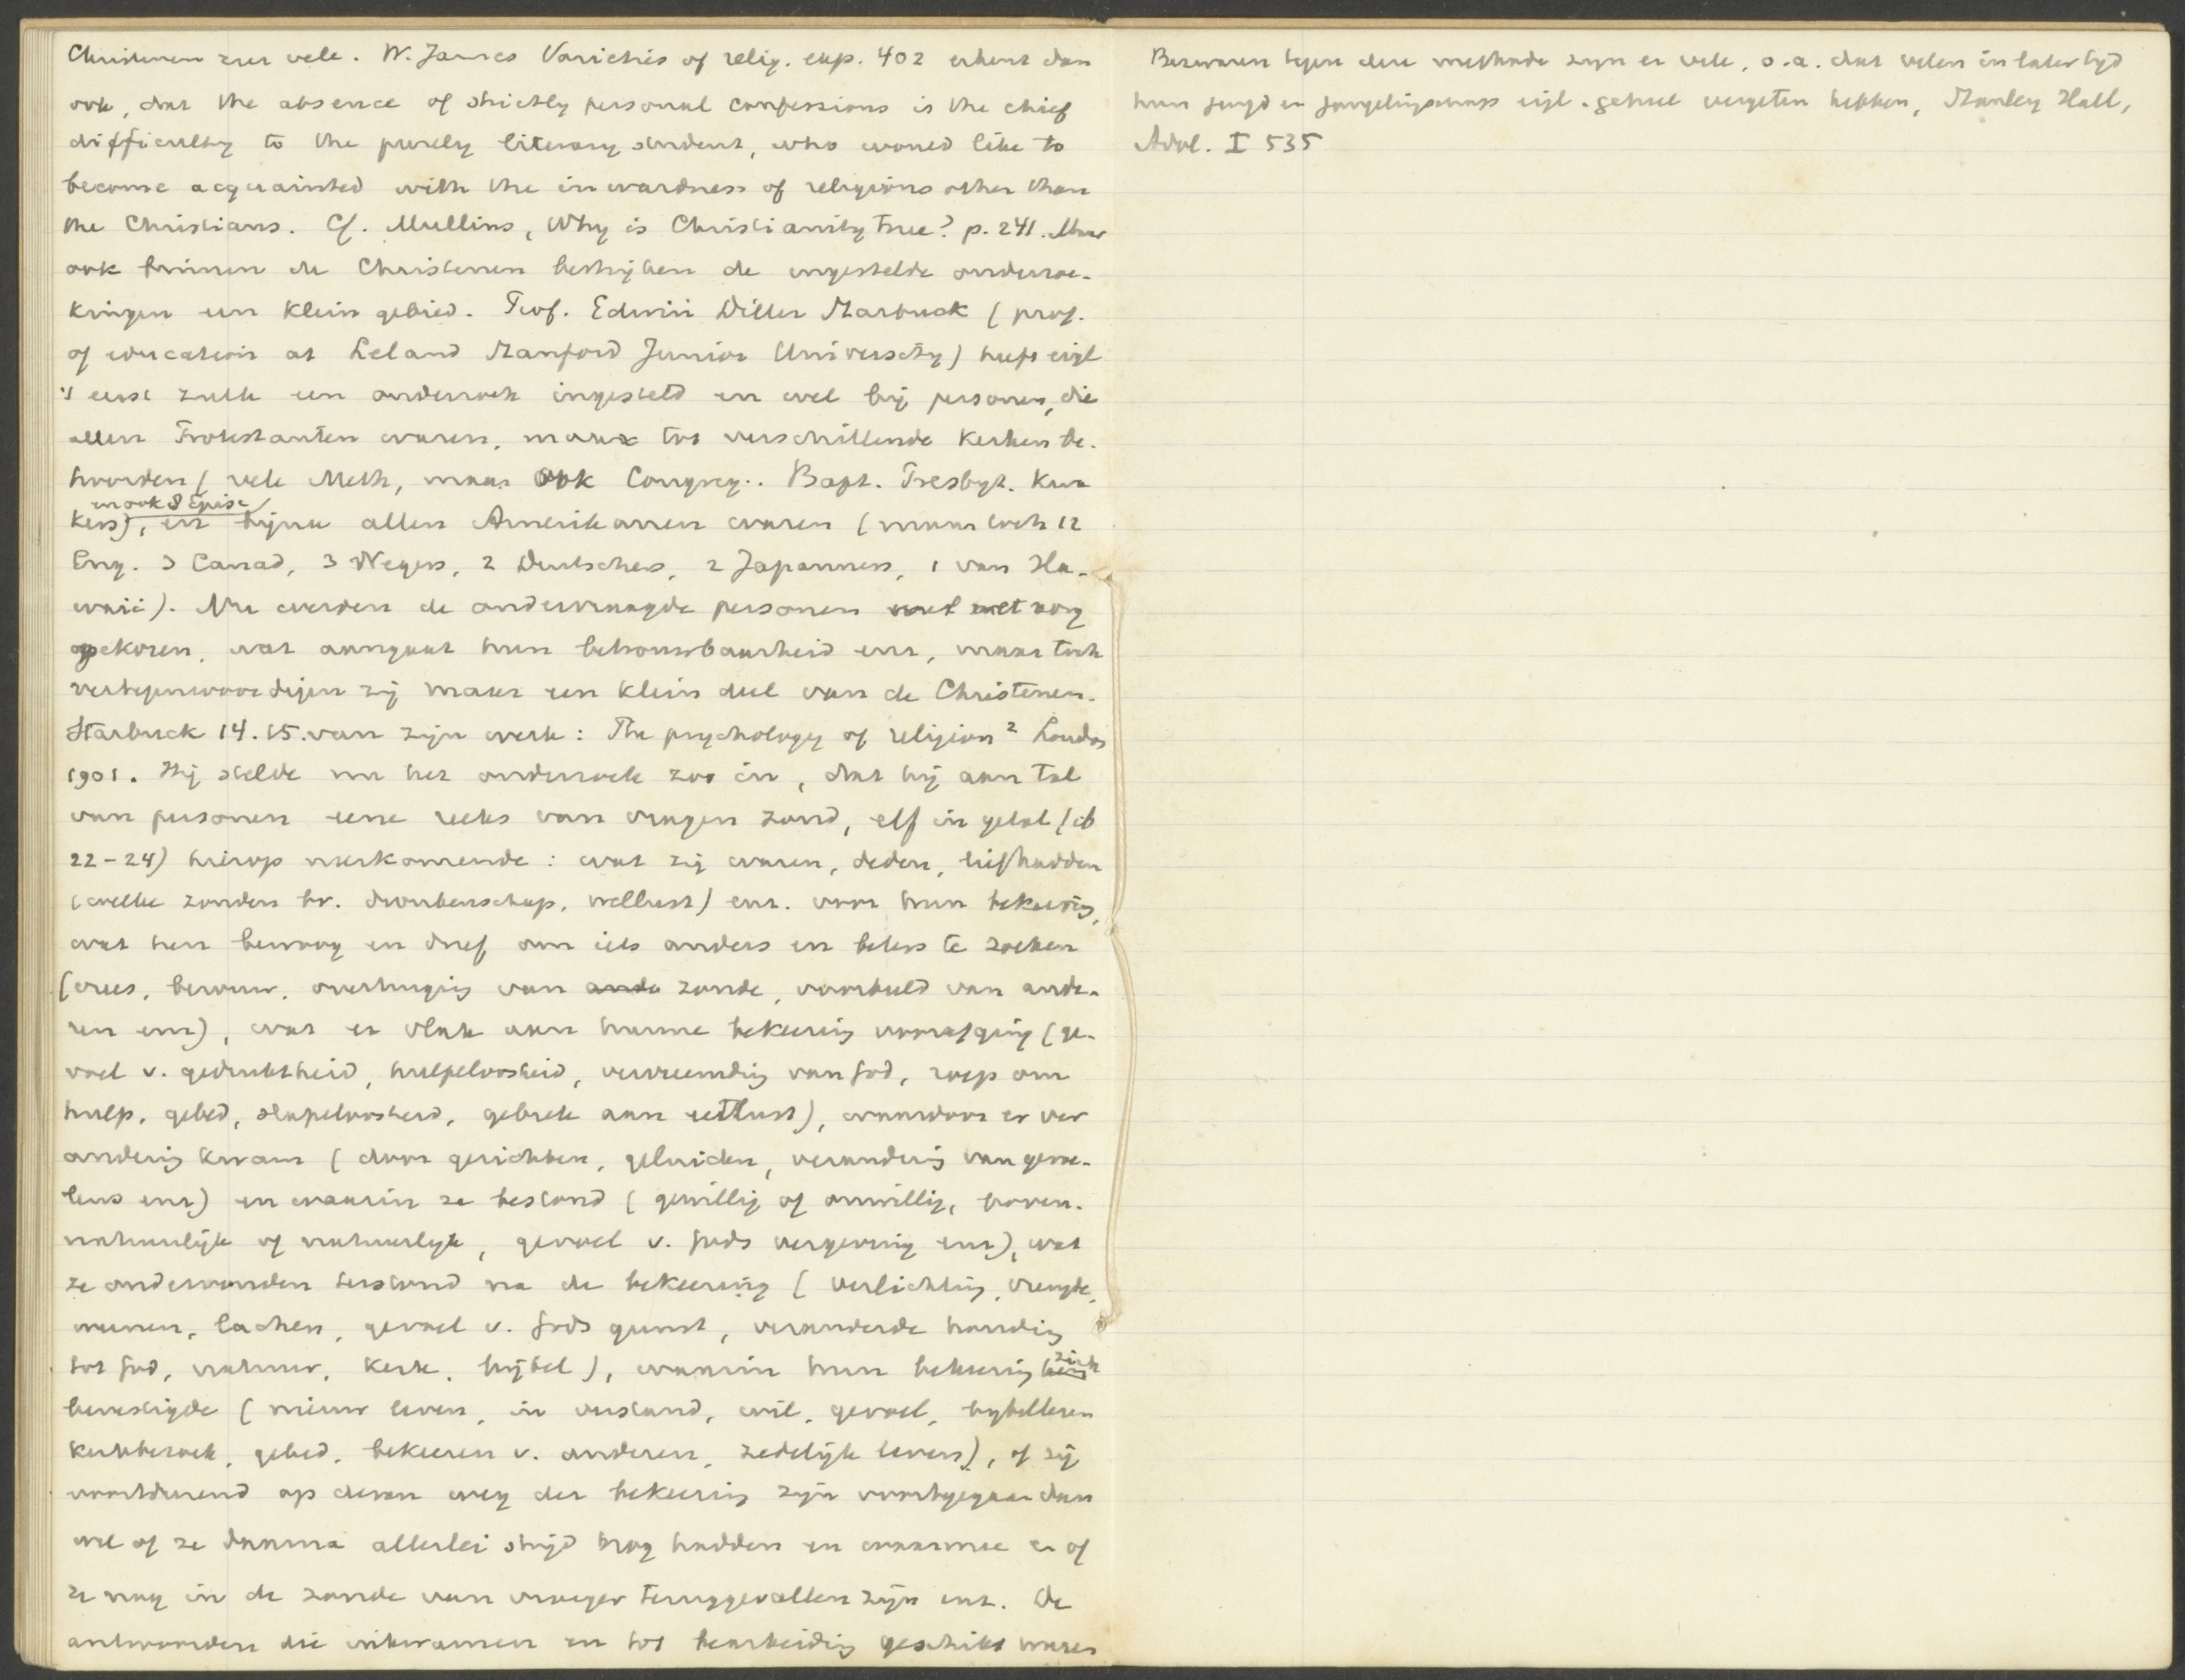 Christenen zeer vele. W. James Varieties of relig. exp. 402 erkent dan
ook, dat the absence of strictly personal confessions is the chief
difficulty to the purely literary student, who would like to
become acquainted with the inwardness of religions other than
the Christians. Cf. Mullins, Why is Christianity true? p. 241. Maar
ook binnen de Christenen bestrijken de ingestelde onderzoe-
kingen een klein gebied. Prof. Edwin Diller Starbuck (prof.
of education at Leland Stanford Junior University) heeft eigl
't eerst zulk een onderzoek ingesteld en wel bij personen, die
allen Protestanten waren, maar tot verschillende kerken be-
hoorden (vele Meth, maar ook Congreg.. Bapt. Presbyt. Kwa
en ook 8 Episc
kers), en bijna allen Amerikanen waren (maar toch 12
Eng. 3 Canad, 3 Negers, 2 Duitschers, 2 Japanners, 1 van Ha-
waii). Nu werden de ondervraagde personen wel met zorg
gekozen, wat aangaat hun betrouwbaarheid enz, maar toch
vertegenwoordigen zij maar een klein deel van de Christenen.
Starbuck 14.15. van zijn werk: The psychology of religion ² London
1901. Hij stelde nu het onderzoek zoo in, dat hij aan tal
van personen eene reeks van vragen zond, elf in getal (ib
22-24) hierop neerkomende: wat zij waren, deden, liefhadden
(welke zonden bv. dronkenschap, wellust) enz. voor hun bekeering,
wat hen bewoog en dreef om iets anders en beters te zoeken
(vrees, berouw, overtuiging van ande zonde, voorbeeld van ande-
ren enz), wat er vlak aan hunne bekeering voorafging (ge-
voel v. gedruktheid, hulpeloosheid, vervreemding van God, roep om
hulp, gebed, slapeloosheid, gebrek aan eetlust), waardoor er ver
andering kwam (door gezichten, geluiden, verandering van gevoe-
lens enz) en waarin ze bestond (gewillig of onwillig, boven-
natuurlijk of natuurlijk, gevoel v. Gods vergeving enz), wat
ze ondervonden terstond na de bekeering (verlichting, vreugde,
weenen, lachen, gevoel v. Gods gunst, veranderde houding
tot God, natuur, kerk, bijbel), waarin hun bekeering zich
bevestigde (nieuw leven, in verstand, wil, gevoel, bijbellezen
kerkbezoek, gebed, bekeeren v. anderen, zedelijk leven), of zij
voortdurend op dezen weg der bekeering zijn voortgegaan dan
wel of ze daarna allerlei strijd nog hadden en waarmee en of
ze nog in de zonde van vroeger teruggevallen zijn enz. De
antwoorden die inkwamen en tot bearbeiding geschikt waren
Bezwaren tegen deze methode zijn er vele, o.a. dat velen in later tijd
hun jeugd en jongelingschap eigl. geheel vergeten hebben, Stanley Hall,
Adol. I 535